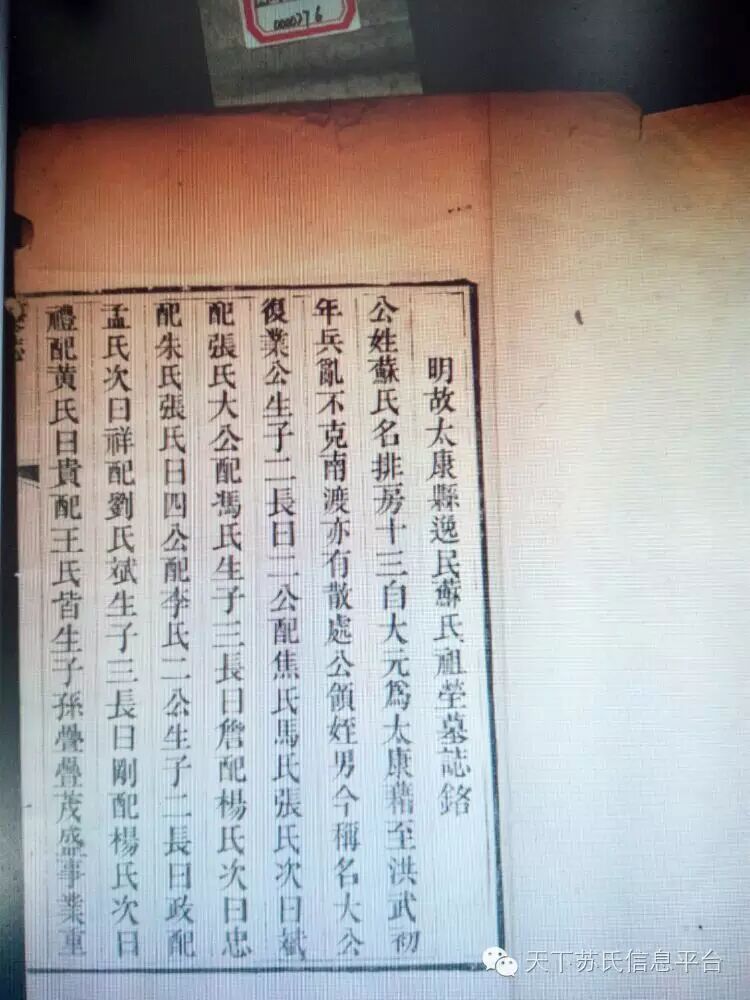 000276
明故太康縣逸民蘇氏祖塋墓誌銘
公姓蘇氏名排房十三自大元爲太康藉至洪武初
年兵亂不克南渡亦有散處公領姪男今稱名大公
復業公生子二長曰二公配焦氏馬氏張氏次曰斌
配張氏大公配馮氏生子三長曰詹配楊氏次曰忠
配朱氏張氏曰四公配李氏二公生子二長曰政配
孟氏次曰祥配劉氏斌生子三長曰剛配楊氏次曰
禮配黄氏曰貴配王氏皆生子孫疊疊茂盛事業重
天下苏氏信息平台